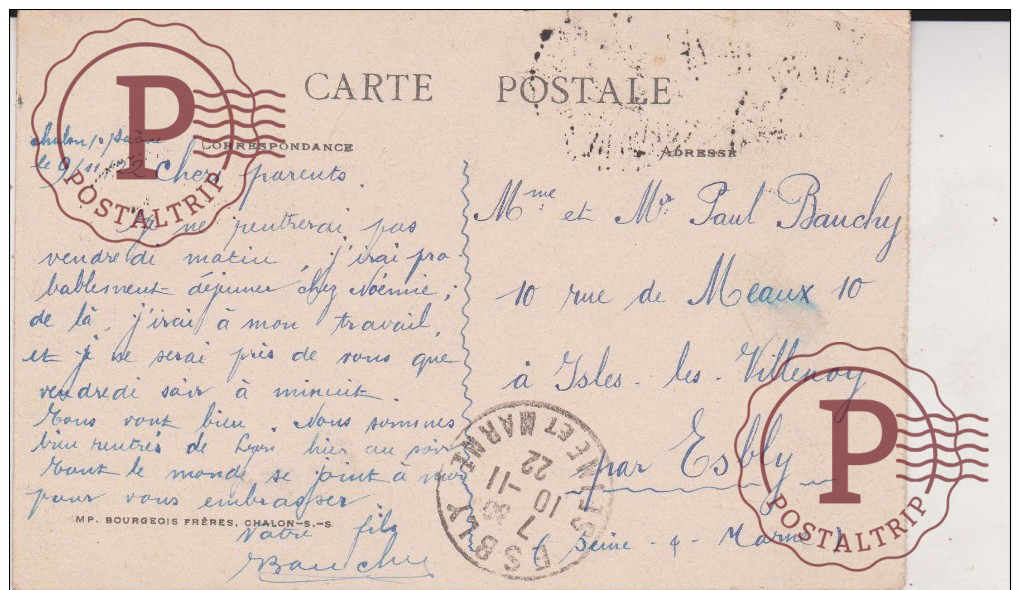 CARTE POSTALE
CORRESPONDANCE
ADRESSE
chalon s/ Saône
le 9/11/22 Chers parents.
Je ne rentrerai pas
vendredi matin, j'irai pro
bablement déjeuner chez Noémie;
de là, j'irai à mon travail,
et je ne serai près de vous que
vendredi soir à minuit.
Tous vont bien. Nous sommes
bien rentrés de Lyon hier au soir
Tout le monde se joint à moi
pour vous embrasser.
Votre fils
Bauchy
MP. BOURGEOIS FRÈRES, CHALON-S.-S.
Mme et Mr Paul Bauchy
10 rue de Meaux 10
à Isles-les-Villenoy
par Esbly
(Seine-&-Marne)
ESBLY
SEINE ET MARNE
7
10 -11
22
P
POSTALTRIP
P
POSTALTRIP